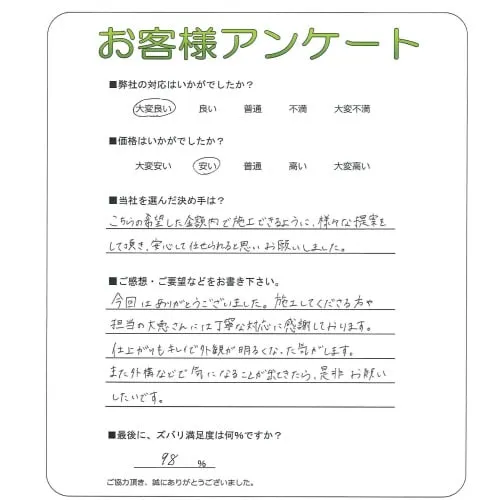 お客様アンケート
■弊社の対応はいかがでしたか?
大変良い 良い 普通 不満 大変不満
■価格はいかがでしたか?
大変安い 安い 普通 高い 大変高い
■当社を選んだ決め手は?
こちらの希望した金額内で施工できるように、様々な提案を
して頂き、安心して任せられると思いお願いしました。
■ご感想・ご要望などをお書き下さい。
今回はありがとうございました。施工してくださる方や
担当の大兎さんには丁寧な対応に感謝しております。
仕上がりもキレイで外観が明るくなった気がします。
また外構などで気になることが出てきたら、是非お願い
したいです。
■最後に、ズバリ満足度は何%ですか?
98 %
ご協力頂き、誠にありがとうございました。